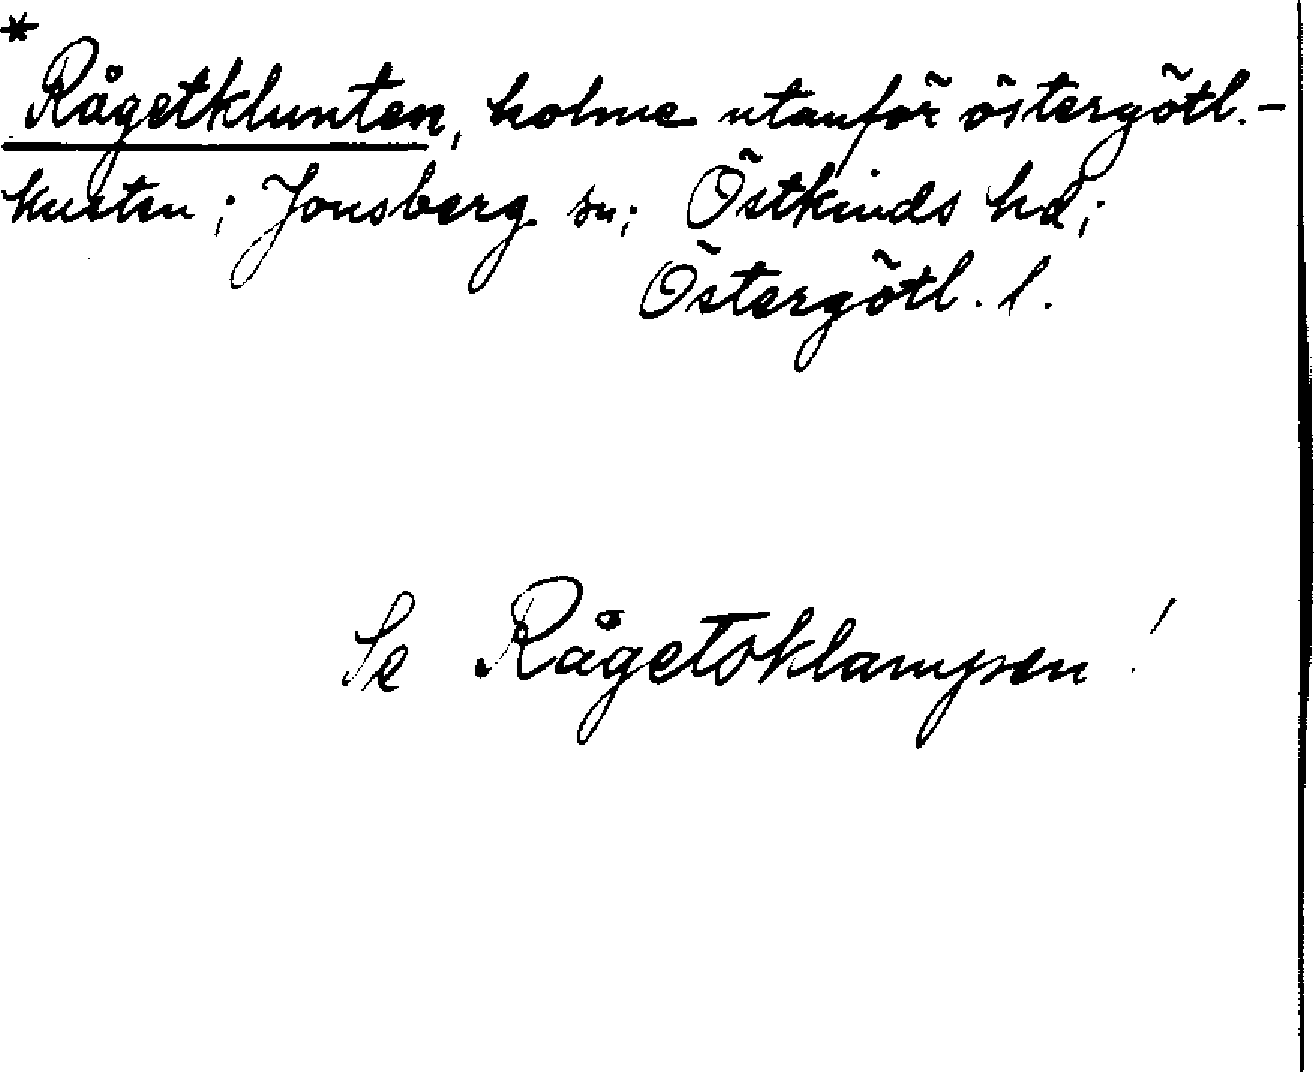 *
Rågetklunten, holme utanför östergötl.-
kusten; Jonsberg sn; Östkinds hd;
Östergötl. l.
Se Rågetsklampen!